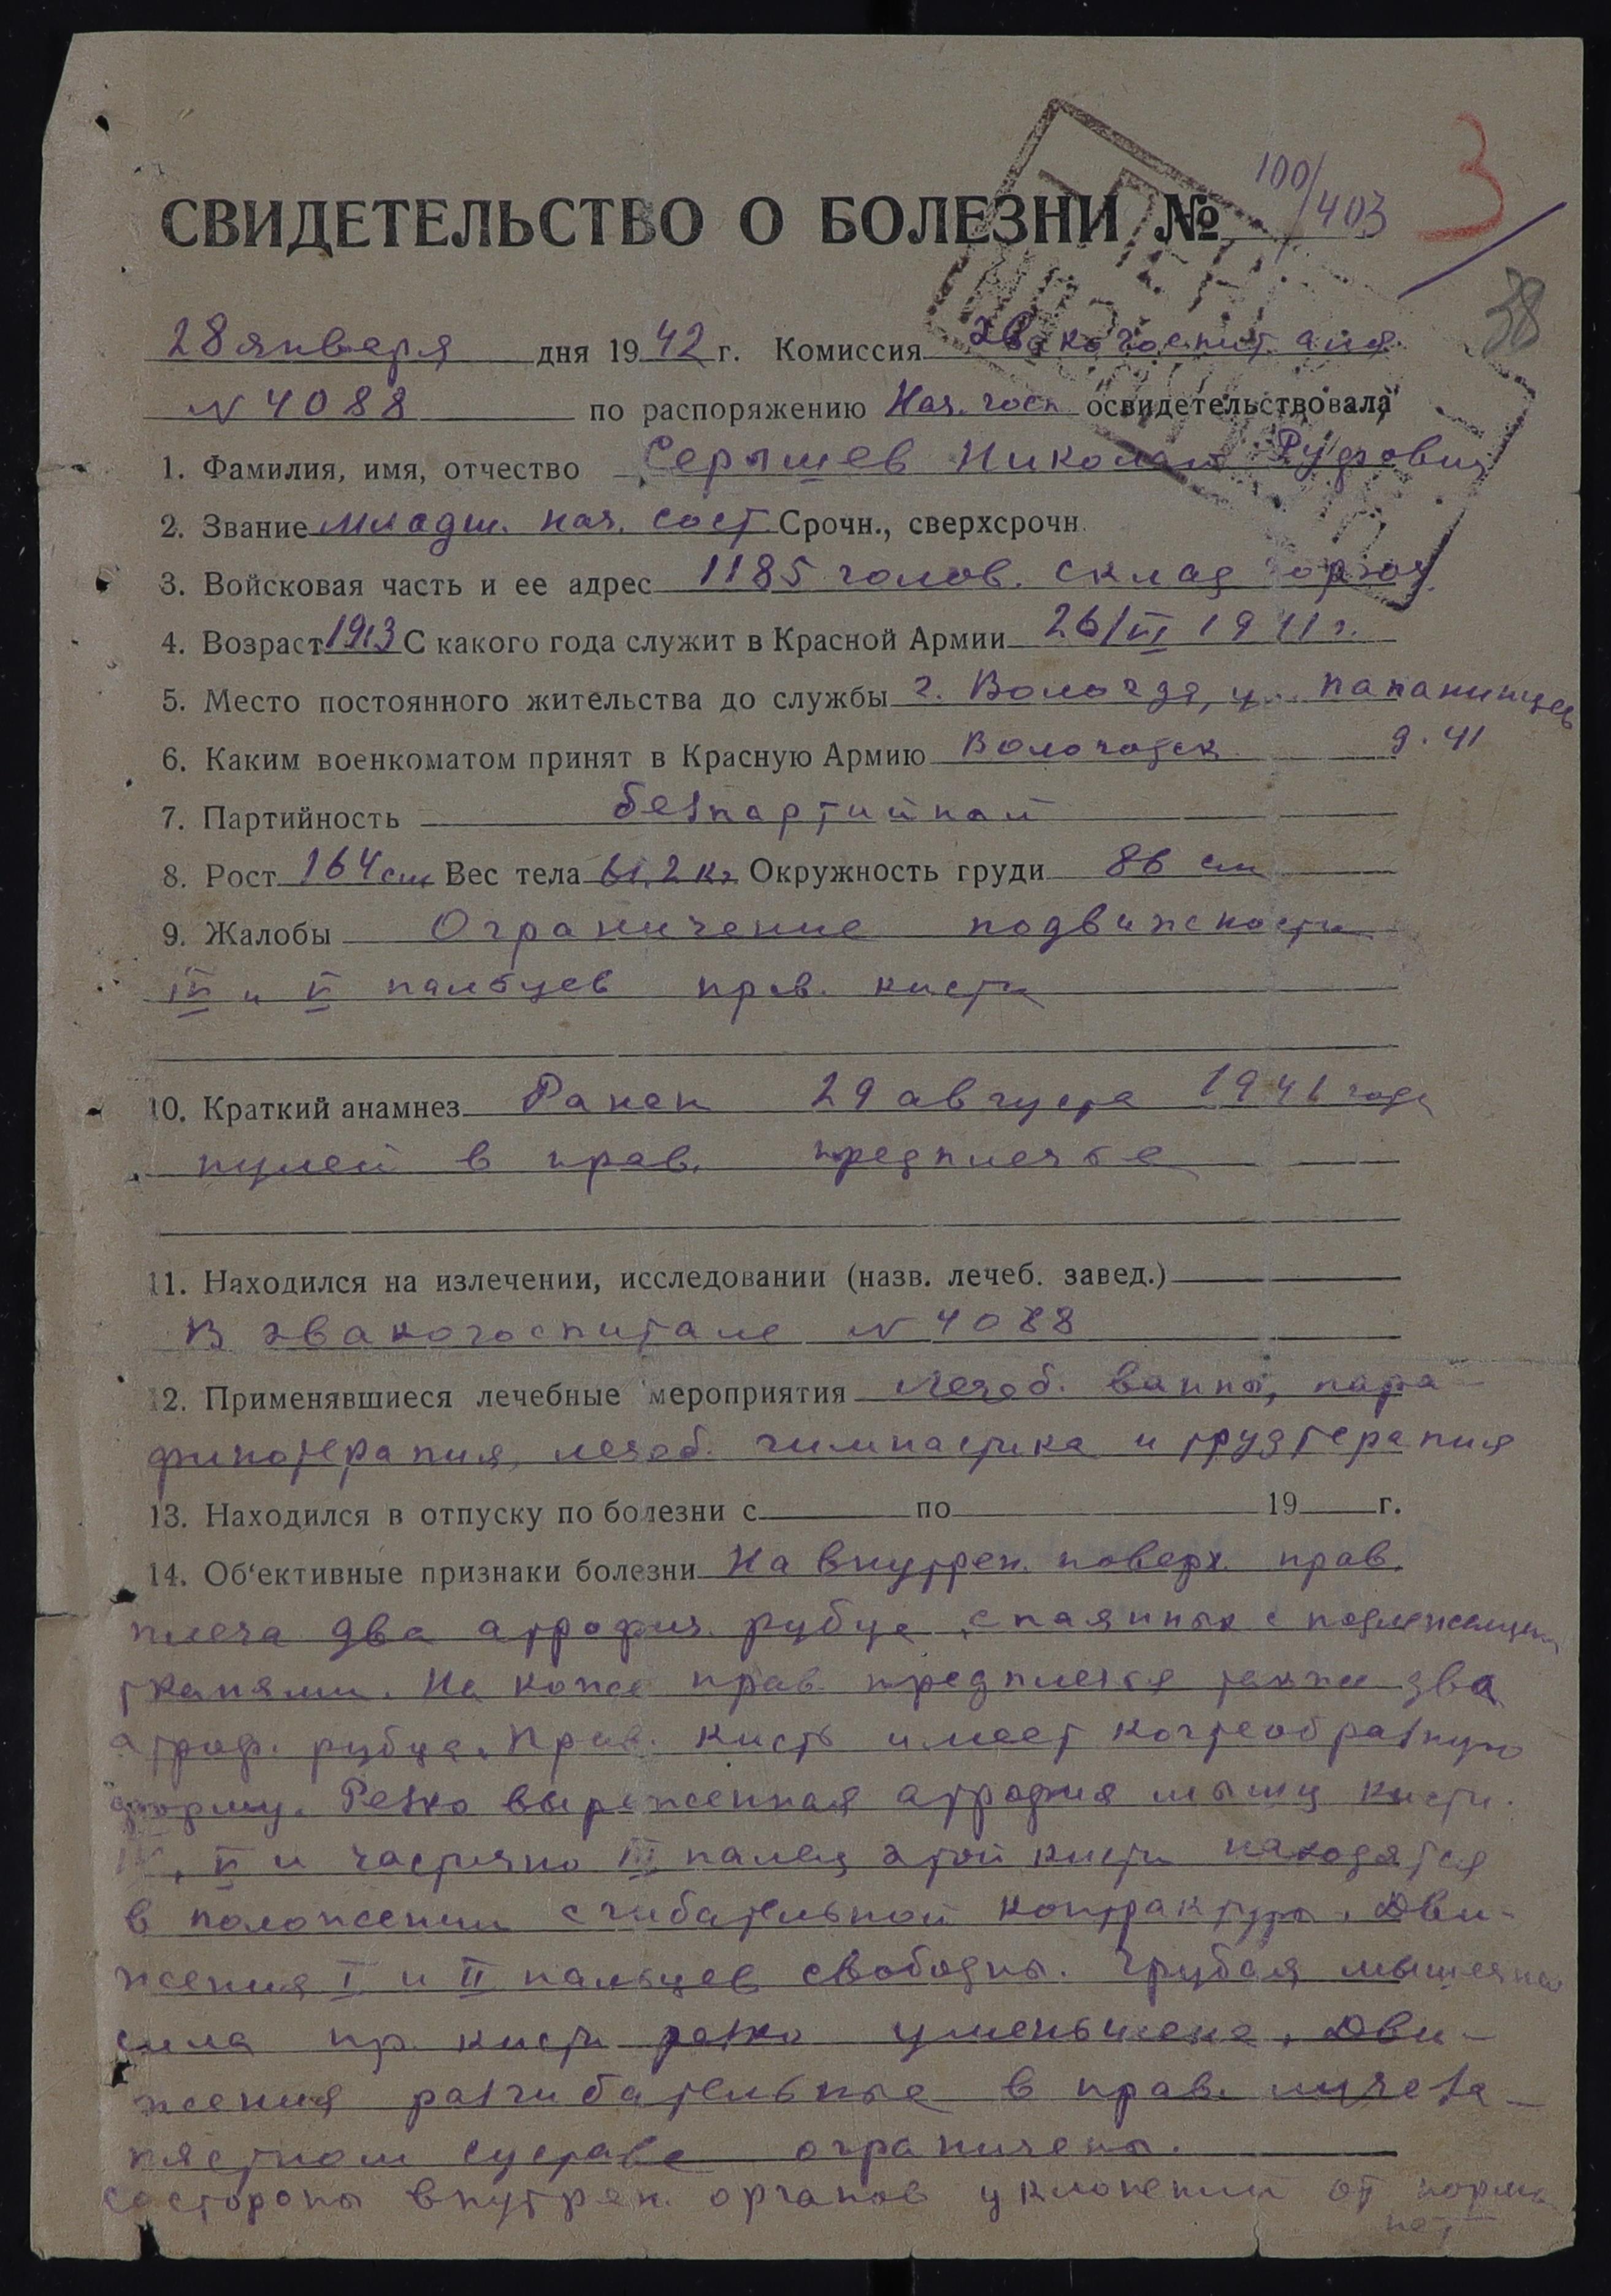 100/403
3
СВИДЕТЕЛЬСТВО О БОЛЕЗНИ №
38
28 января дня 1942 г. Комиссия эвакогоспиталя
N 4088 по распоряжению Нач. госп. освидетельствовала
1. Фамилия, имя, отчество Серышев Николай Руфович
2. Звание младш. нач. сост. Срочн., сверхсрочн.
3. Войсковая часть и ее адрес 1185 голов. склад
4. Возраст 1913 С какого года служит в Красной Армии 26/VI 1941 г.
5. Место постоянного жительства до службы г. Вологда, ул. Папанинцев
6. Каким военкоматом принят в Красную Армию Вологодск. д. 41
7. Партийность безпартийный
8. Рост 164 см Вес тела 61,2 кг Окружность груди 86 см
9. Жалобы Ограничение подвижности
IV и V пальцев прав. кисти
10. Краткий анамнез Ранен 29 августа 1941 года
пулей в прав. предплечье
11. Находился на излечении, исследовании (назв. лечеб. завед.)
В эвакогоспитале N 4088
12. Применявшиеся лечебные мероприятия Лечеб. ванны, пара-
финотерапия, лечеб. гимнастика и трудтерапия
13. Находился в отпуску по болезни с по 19 г.
14. Об'ективные признаки болезни На внутрен. поверх. прав.
плеча два атрофич. рубца, спаянных с подлежащими
тканями. На коже прав. предплечья также два
атроф. рубца. Прав. кисть имеет когтеобразную
форму. Резко выраженная атрофия мышц кисти.
IV, V и частично III палец этой кисти находятся
в положении сгибательной контрактуры. Дви-
жения I и II пальцев свободны. Грубая мышечная
сила пр. кисти резко уменьшена. Дви-
жения разгибательные в прав. лучеза-
пястном суставе ограничены.
Со стороны внутрен. органов уклонений от нормы
нет